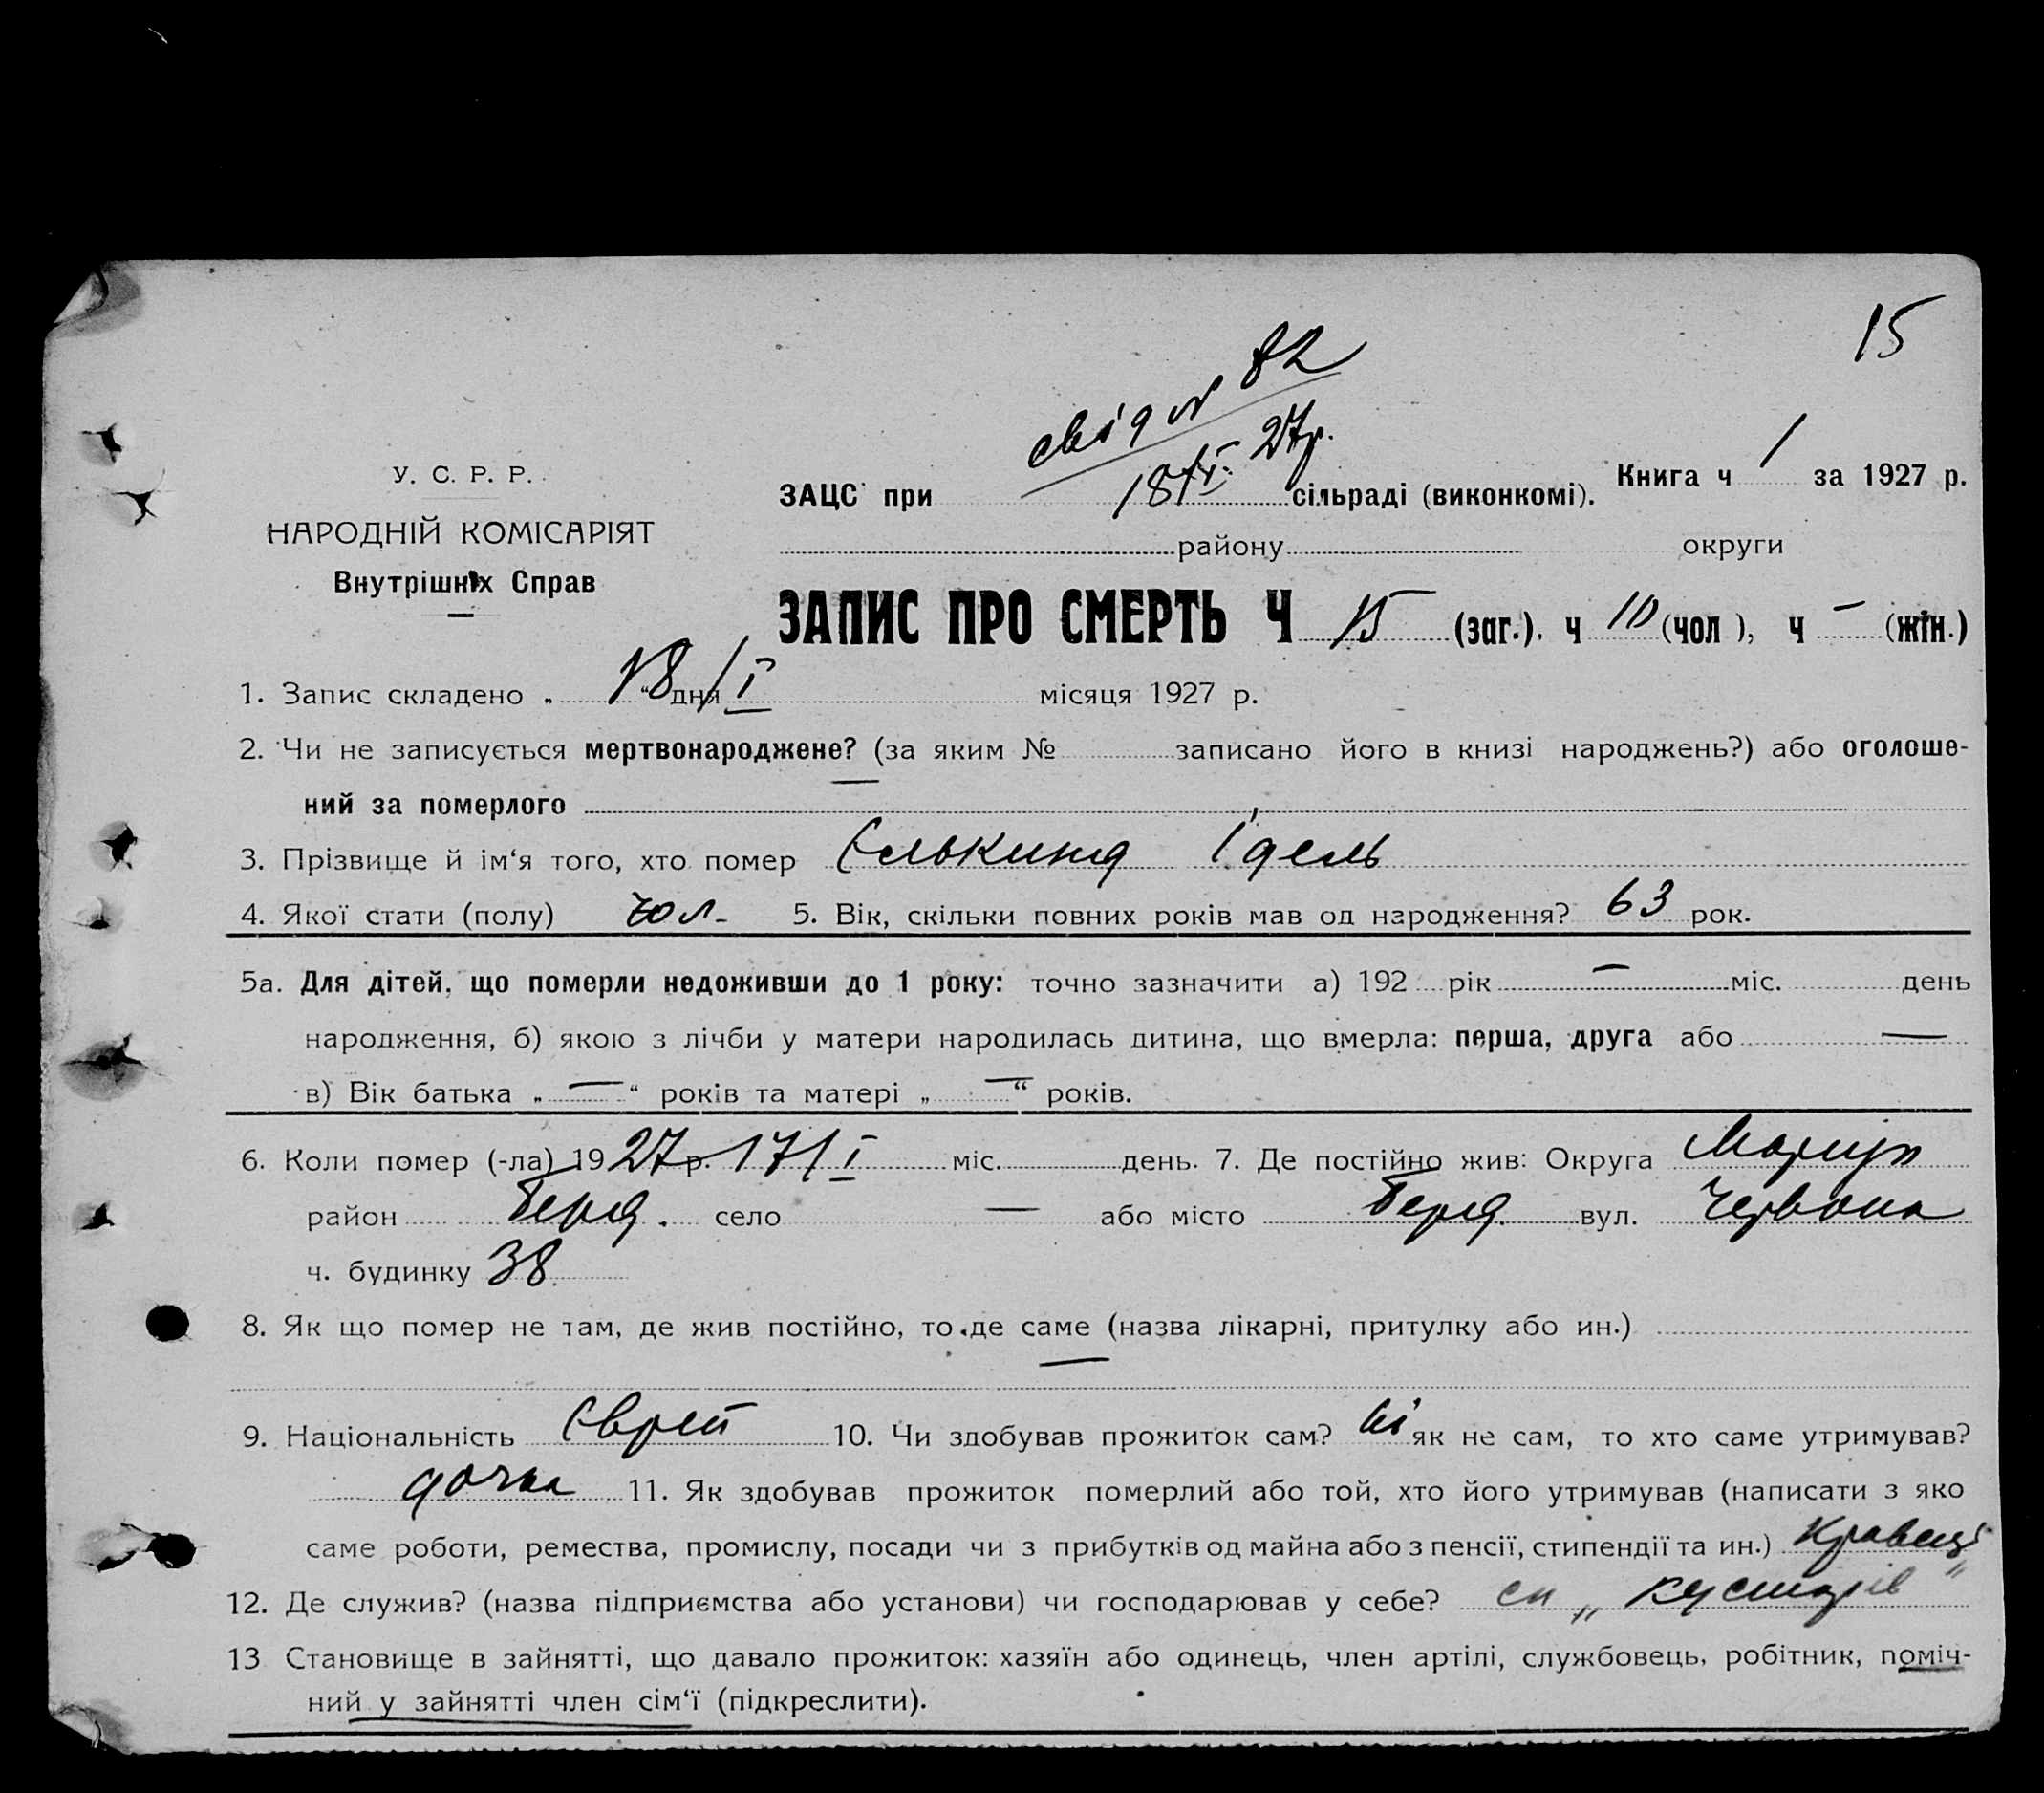 15
свід № 82
18/I. 27р.
У. С. Р. Р.
НАРОДНІЙ КОМІСАРІЯТ
Внутрішніх Справ
ЗАЦС при сільраді (виконкомі). Книга ч 1 за 1927 р.
району округи
ЗАПИС ПРО СМЕРТЬ Ч 15 (заг.), ч 10 (чол), ч — (жін.)
1. Запис складено „18“ дня / I місяця 1927 р.
2. Чи не записується мертвонароджене? (за яким № записано його в книзі народжень?) або оголоше-
ний за померлого —
3. Прізвище й ім‘я того, хто помер Єлькинд Ідель
4. Якої стати (полу) чол. 5. Вік, скільки повних років мав од народження? 63 рок.
5а. Для дітей, що померли недоживши до 1 року: точно зазначити а) 192 рік — міс. день
народження, б) якою з лічби у матери народилась дитина, що вмерла: перша, друга або —
в) Вік батька „—“ років та матері „—“ років.
6. Коли помер (-ла) 1927 р. 17/I міс. день. 7. Де постійно жив: Округа Маріуп
район Берд. село — або місто Берд. вул. Червона
ч. будинку 38
8. Як що помер не там, де жив постійно, то де саме (назва лікарні, притулку або ин.)
—
9. Національність Єврей 10. Чи здобував прожиток сам? Ні як не сам, то хто саме утримував?
дочка 11. Як здобував прожиток померлий або той, хто його утримував (написати з яко
саме роботи, ремества, промислу, посади чи з прибутків од майна або з пенсії, стипендії та ин.)
12. Де служив? (назва підприємства або установи) чи господарював у себе? сп „кустарів“
13 Становище в зайнятті, що давало прожиток: хазяїн або одинець, член артілі, службовець, робітник, поміч-
ний у зайнятті член сім‘ї (підкреслити).